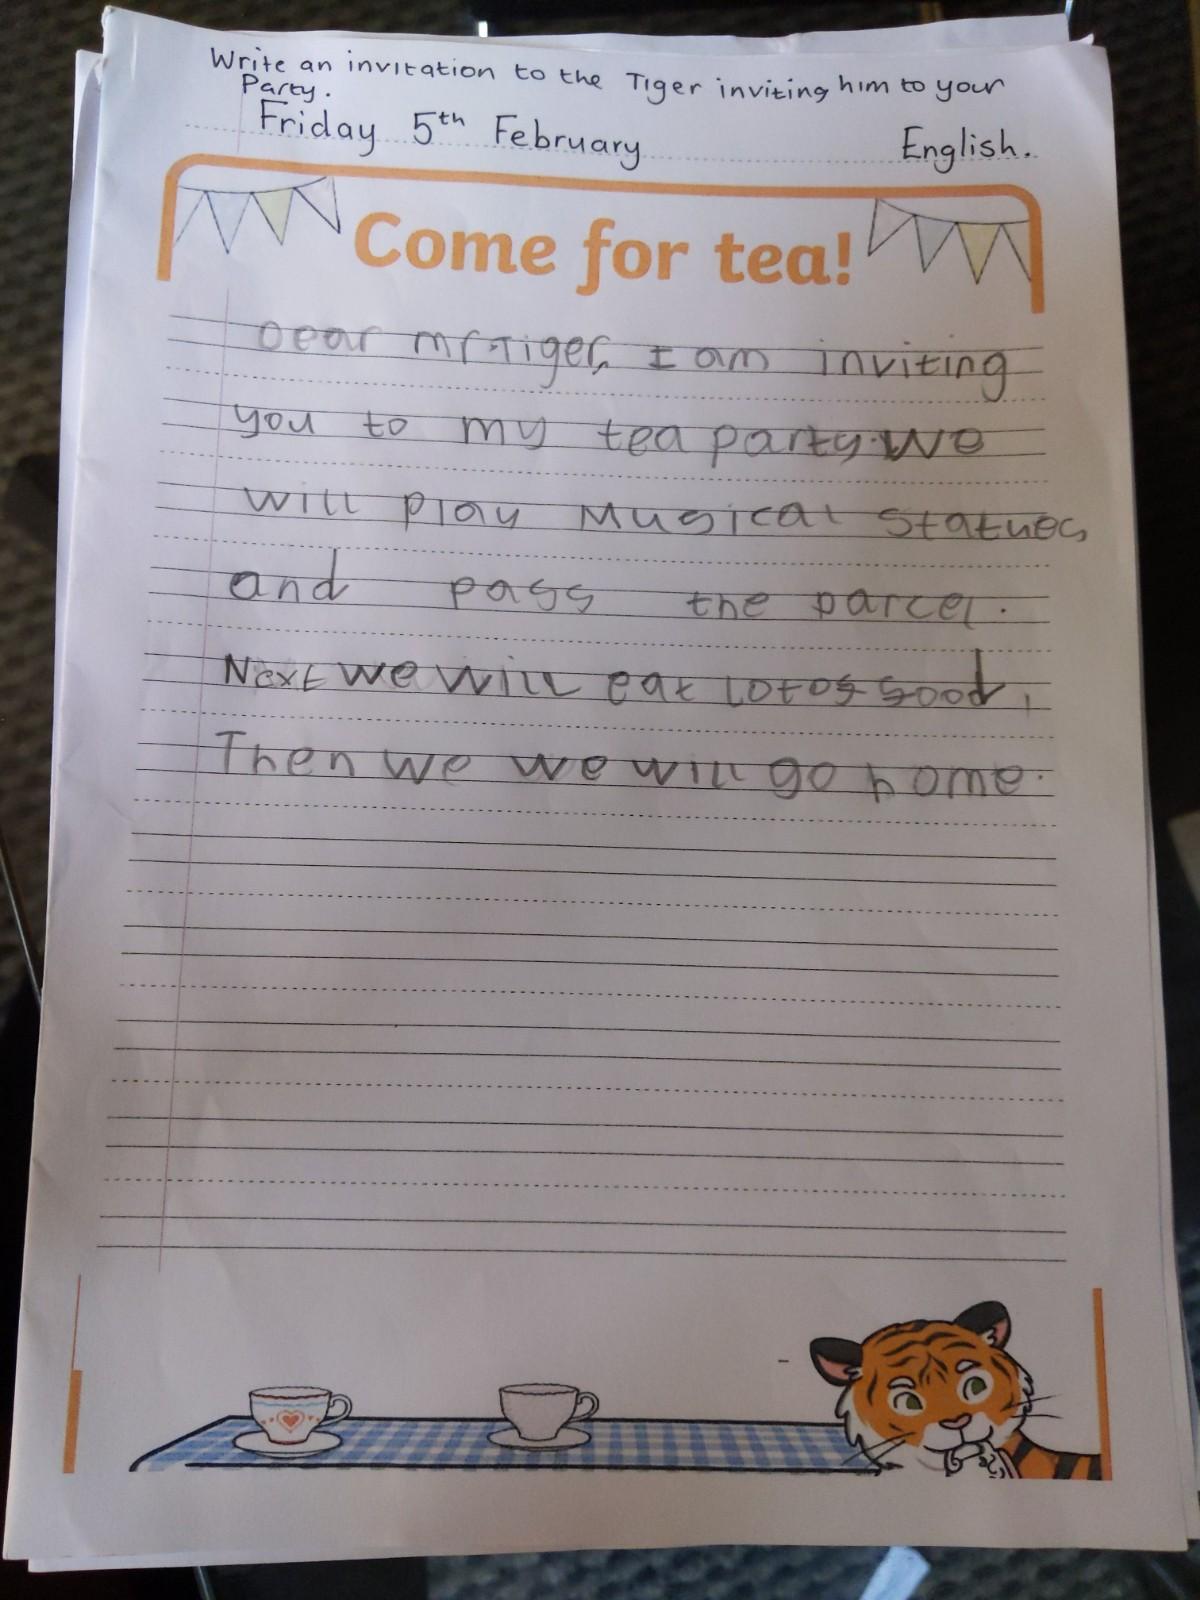 Write an invitation to the Tiger inviting him to your
Party.
Friday 5th February English.
Come for tea!
Dear mr.Tiger, I am inviting
you to my tea party. We
will play Musical Statues
and pass the parcel.
Next we will eat lotos food.
Then we we will go home.